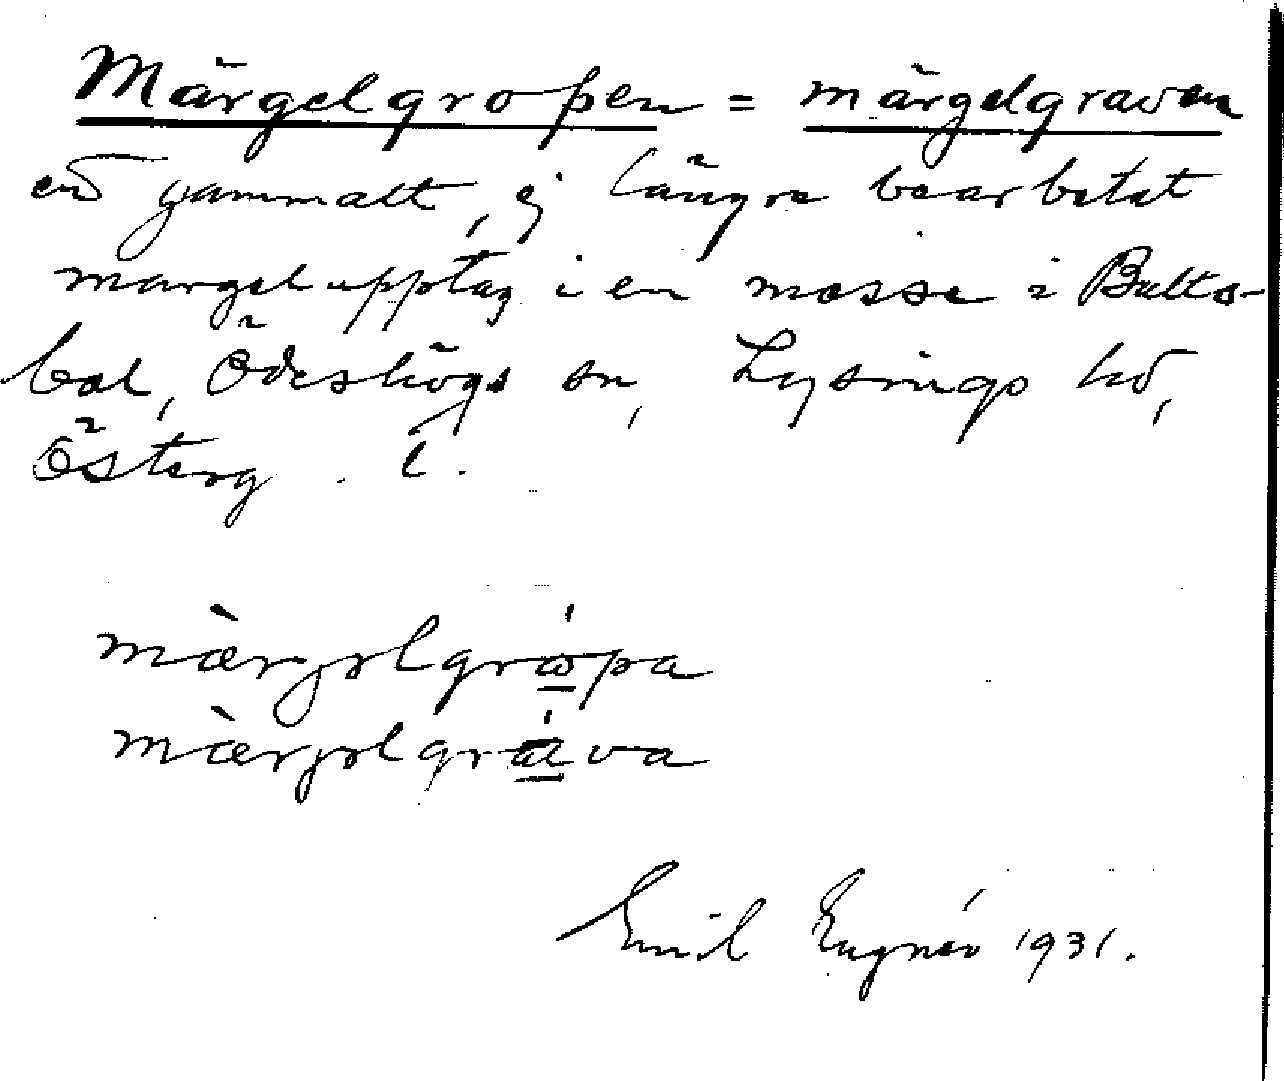 Märgelgropen = märgelgraven
ett gammalt, ej längre bearbetat
märgelupptag i en mosse i Bults-
bol, Ödeshögs sn, Lysings hd,
Österg. l.
mà̀rjəlgrópa
mà̀rjəlgráva
Emil Engnév 1931.